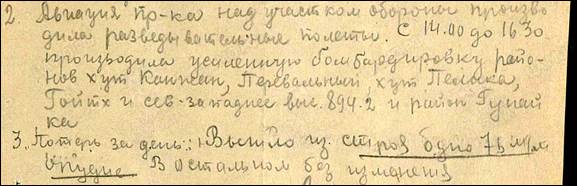 2. Авиация пр-ка над участком обороны произво
дила разведывательные полеты. С 14.00 до 16 30
производила усиленную бомбардировку райо-
нов хут Каншан, Перевальный, хут Пелика,
Гойтх и сев-западнее выс. 894.2 и район Гунай
ка
3. Потерь за день: Вышло из строя одно 76 м/м
орудие В остальном без изменения